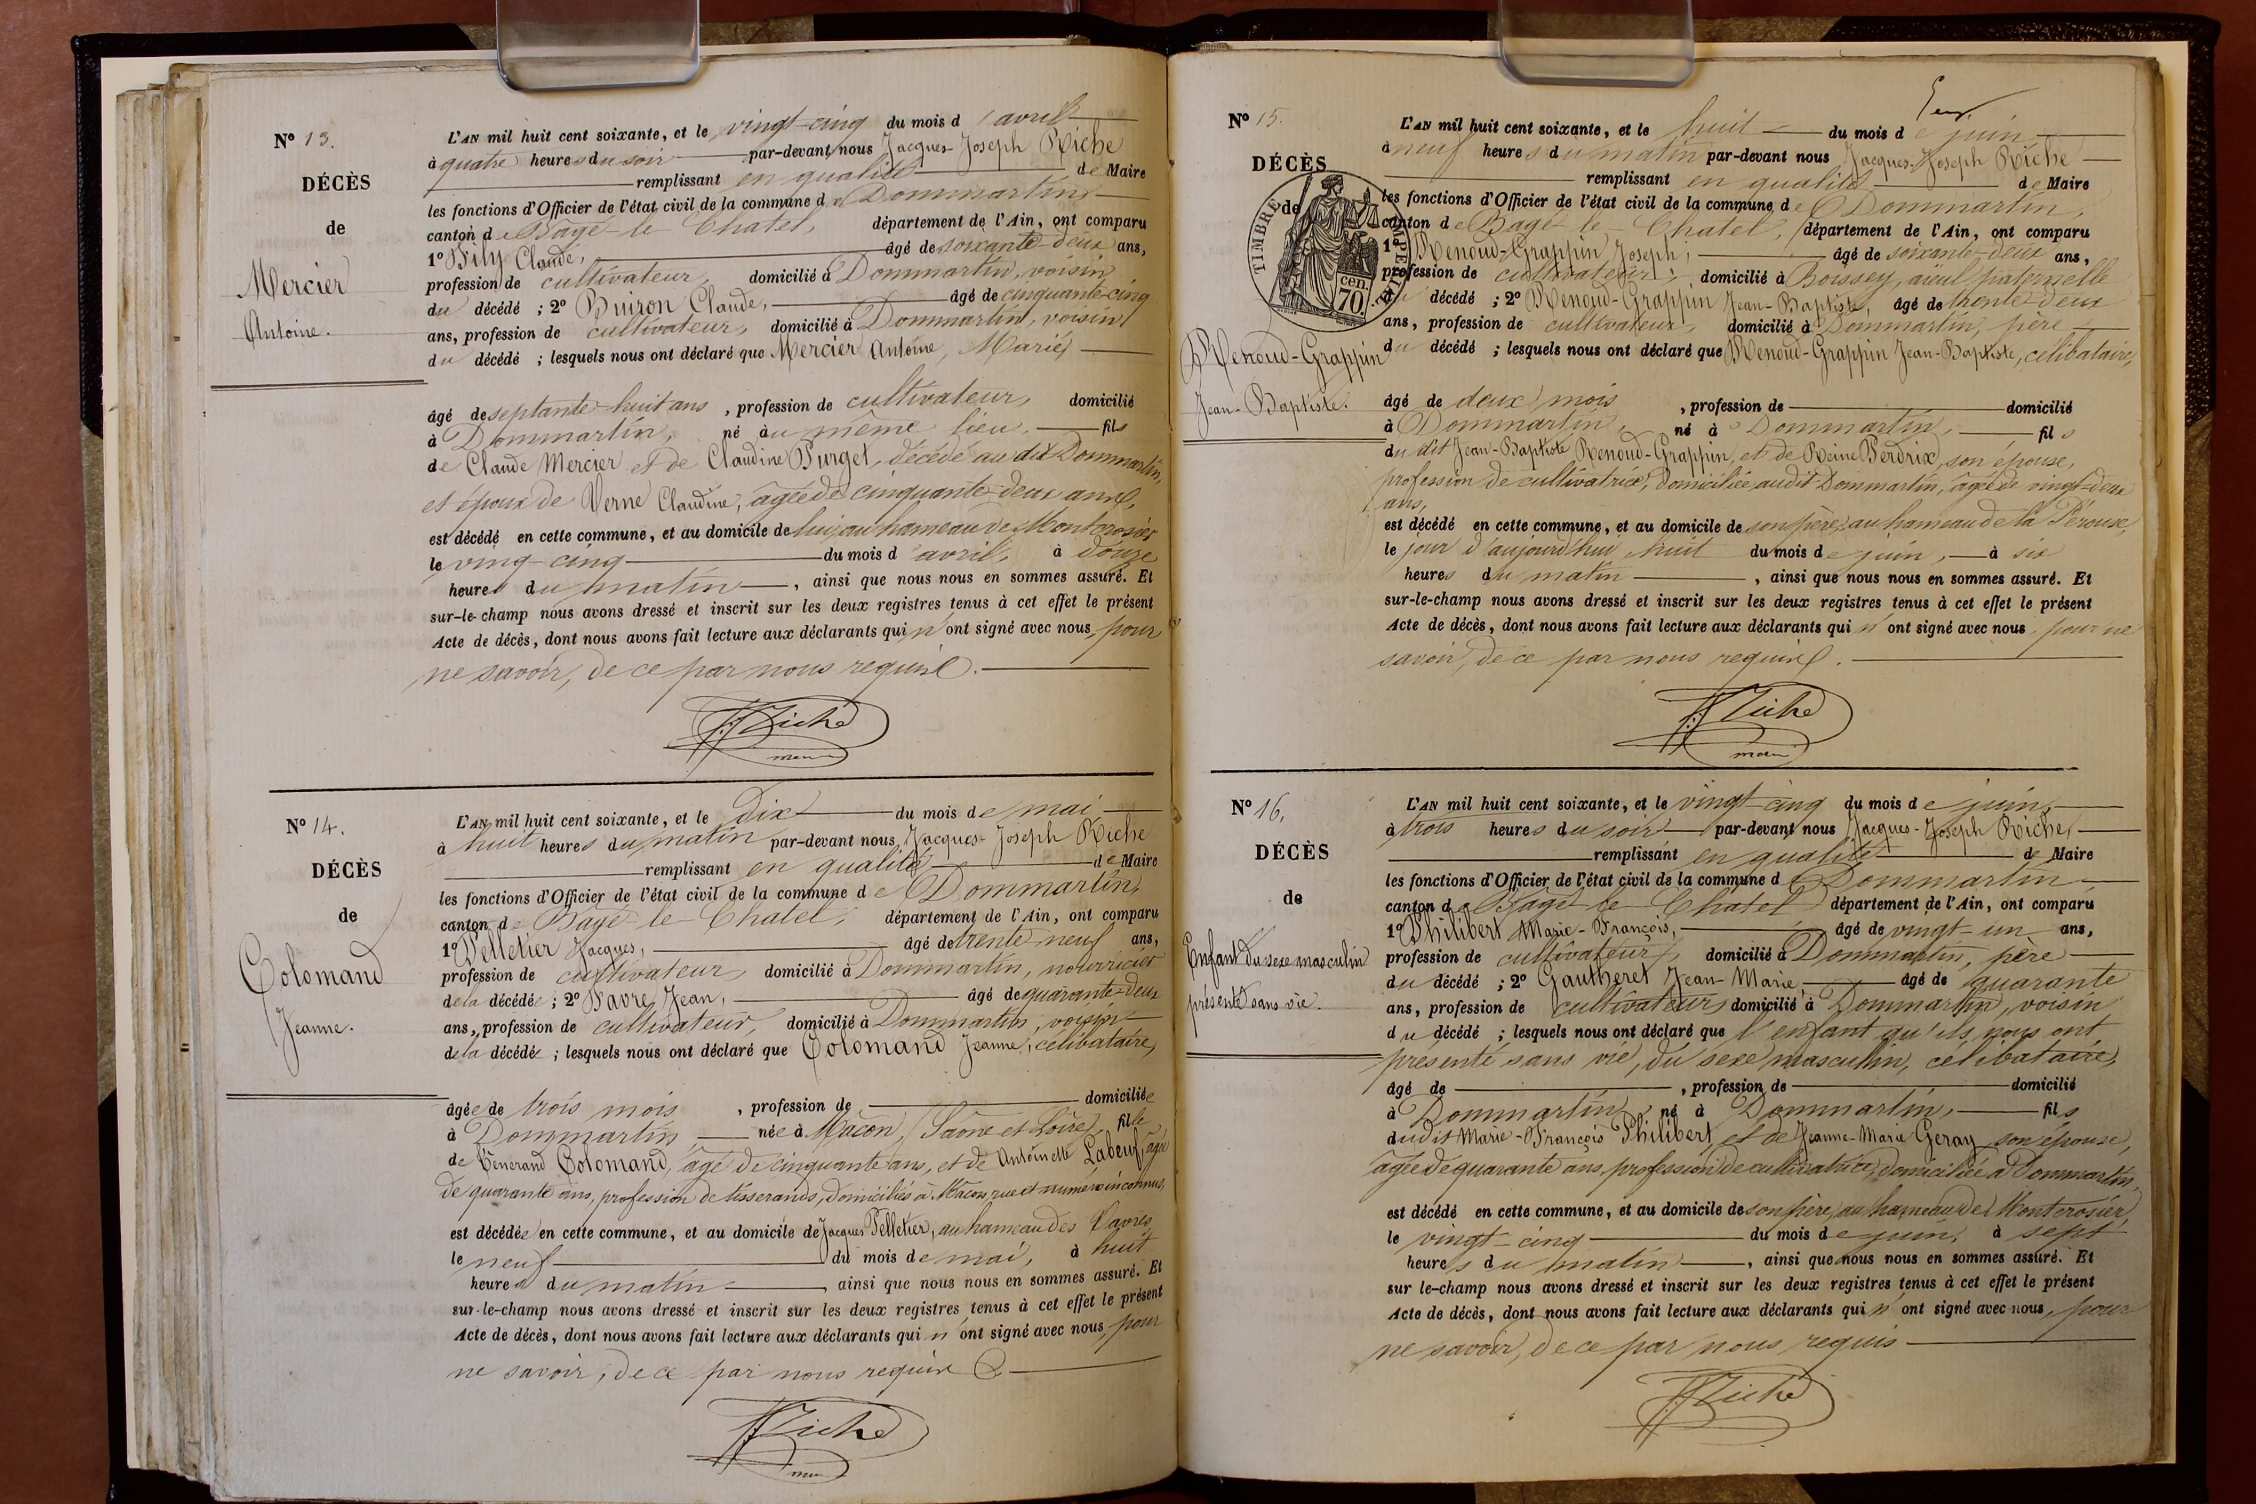 N° 13.
DÉCÈS
de
Mercier
Antoine.
L'AN mil huit cent soixante, et le vingt-cinq du mois d'avril
à quatre heures du soir par-devant nous Jacques-Joseph Riche
remplissant en qualité de Maire
les fonctions d'Officier de l'état civil de la commune de Dommartin,
canton de Bagé-le-Chatel, département de l'Ain, ont comparu
1° Fily Claude, âgé de soixante-deux ans,
profession de cultivateur, domicilié à Dommartin, voisin
du décédé ; 2° Buiron Claude, âgé de cinquante-cinq
ans, profession de cultivateur, domicilié à Dommartin, voisin
du décédé ; lesquels nous ont déclaré que Mercier Antoine, Marié,
âgé de septante-huit ans, profession de cultivateur, domicilié
à Dommartin, né au même lieu, fils
de Claude Mercier et de Claudine Purget, décédé au dit Dommartin,
et époux de Verne Claudine, âgée de cinquante-deux ans,
est décédé en cette commune, et au domicile de lui, au hameau de Montrosier
le ving-cinq du mois d'avril, à douze
heures du matin, ainsi que nous nous en sommes assuré. Et
sur-le-champ nous avons dressé et inscrit sur les deux registres tenus à cet effet le présent
Acte de décès, dont nous avons fait lecture aux déclarants qui n'ont signé avec nous, pour
ne savoir, de ce par nous requis.
JJ Riche
maire
N° 14.
DÉCÈS
de
Colomand
Jeanne.
L'AN mil huit cent soixante, et le Dix du mois de mai
à huit heures du matin par-devant nous Jacques-Joseph Riche
remplissant en qualité de Maire
les fonctions d'Officier de l'état civil de la commune de Dommartin,
canton de Bagé-le-Chatel, département de l'Ain, ont comparu
1° Pelletier Jacques, âgé de trente-neuf ans,
profession de cultivateur, domicilié à Dommartin, nourricier
de la décédée ; 2° Favre Jean, âgé de quarante-deux
ans, profession de cultivateur, domicilié à Dommartin, voisin
de la décédée ; lesquels nous ont déclaré que Colomand Jeanne, célibataire,
âgée de trois mois, profession de domiciliée
à Dommartin, née à Mâcon, (Saône et Loire), fille
de Vénérand Colomand, âgé de cinquante ans, et de Antoinette Labeuf, âgée
de quarante ans, profession de tisserands, domiciliés à Mâcon, rue et numéro inconnus,
est décédée en cette commune, et au domicile de Jacques Pelletier, au hameau des Favres,
le neuf du mois de mai, à huit
heures du matin, ainsi que nous nous en sommes assuré. Et
sur-le-champ nous avons dressé et inscrit sur les deux registres tenus à cet effet le présent
Acte de décès, dont nous avons fait lecture aux déclarants qui n'ont signé avec nous, pour
ne savoir, de ce par nous requis
JJ Riche
maire
N° 15.
DÉCÈS
de
TIMBRE IMPERIAL
70 cen.
Renoud-Grappin
Jean-Baptiste.
L'AN mil huit cent soixante, et le huit du mois de juin
à neuf heures du matin par-devant nous Jacques-Joseph Riche
remplissant en qualité de Maire
les fonctions d'Officier de l'état civil de la commune de Dommartin,
canton de Bagé-le-Chatel, département de l'Ain, ont comparu
1° Renoud-Grappin Joseph, âgé de soixante-deux ans,
profession de cultivateur, domicilié à Boissey, aïeul paternelle
du décédé ; 2° Renoud-Grappin Jean-Baptiste, âgé de trente-deux
ans, profession de cultivateur, domicilié à Dommartin, père
du décédé ; lesquels nous ont déclaré que Renoud-Grappin Jean-Baptiste, célibataire,
âgé de deux mois, profession de domicilié
à Dommartin, né à Dommartin, fils
du dit Jean-Baptiste Renoud-Grappin, et de Reine Perdrix, son épouse,
profession de cultivatrice, domiciliée audit Dommartin, âgée de vingt-deux
ans,
est décédé en cette commune, et au domicile de son père, au hameau de la Pérouse,
le jour d'aujourd'hui huit du mois de juin, à six
heures du matin, ainsi que nous nous en sommes assuré. Et
sur-le-champ nous avons dressé et inscrit sur les deux registres tenus à cet effet le présent
Acte de décès, dont nous avons fait lecture aux déclarants qui n'ont signé avec nous, pour ne
savoir, de ce par nous requis.
JJ Riche
maire
N° 16.
DÉCÈS
de
Enfant du sexe masculin
présenté sans vie.
L'AN mil huit cent soixante, et le vingt-cinq du mois de juin,
à trois heures du soir par-devant nous Jacques-Joseph Riche,
remplissant en qualité de Maire
les fonctions d'Officier de l'état civil de la commune de Dommartin
canton de Bagé-le-Chatel département de l'Ain, ont comparu
1° Philibert Marie-François, âgé de vingt-un ans,
profession de cultivateur, domicilié à Dommartin, père
du décédé ; 2° Gautheret Jean-Marie âgé de quarante
ans, profession de cultivateur, domicilié à Dommartin, voisin
du décédé ; lesquels nous ont déclaré que l'enfant qu'ils nous ont
présenté sans vie, du sexe masculin, célibataire,
âgé de , profession de domicilié
à Dommartin, né à Dommartin, fils
dudit Marie-François Philibert, et de Jeanne-Marie Geray, son épouse,
âgée de quarante ans, profession de cultivatrice, domiciliée à Dommartin,
est décédé en cette commune, et au domicile de son père, au hameau de Monterosier
le vingt-cinq du mois de juin, à sept
heures du matin, ainsi que nous nous en sommes assuré. Et
sur le-champ nous avons dressé et inscrit sur les deux registres tenus à cet effet le présent
Acte de décès, dont nous avons fait lecture aux déclarants qui n'ont signé avec nous, pour
ne savoir, de ce par nous requis
JJ Riche